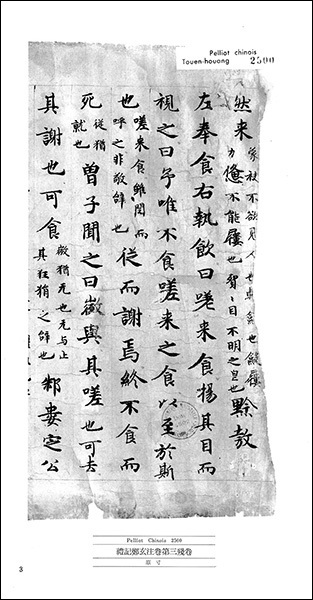 Pelliot chinois
Touen-houang 2500
然来 蒙袂不欲見人也輯斂也斂屨力憊不能屨也貿〻目不明之皃也 黔敖
左奉食右執飲曰嗟来食揚其目而
視之曰予唯不食嗟来之食以至於斯
也 嗟来食雖閔而呼之非敬辤也 從而謝焉終不食而
死 從猶就也 曾子聞之曰微與其嗟也可去
其謝也可食 微猶无也无与止其狂狷之辤也 邾婁定公
Pelliot Chinois 2500
禮記鄭玄注卷第三殘卷
原寸
3